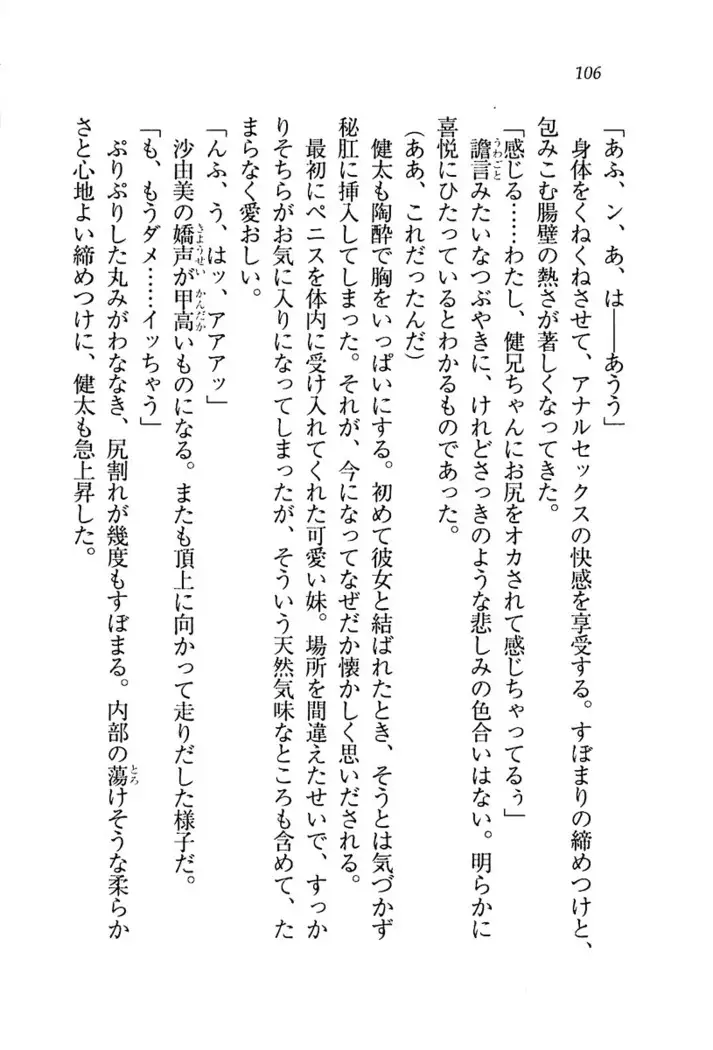 106
「あふ、ン、あ、は――あうう」
身体をくねくねさせて、アナルセックスの快感を享受する。すぼまりの締めつけと、
包みこむ腸壁の熱さが著しくなってきた。
「感じる……わたし、健兄ちゃんにお尻をオカされて感じちゃってるぅ」
譫言みたいなつぶやきに、けれどさっきのような悲しみの色合いはない。明らかに
喜悦にひたっているとわかるものであった。
(ああ、これだったんだ)
健太も陶酔で胸をいっぱいにする。初めて彼女と結ばれたとき、そうとは気づかず
秘肛に挿入してしまった。それが、今になってなぜだか懐かしく思いだされる。
最初にペニスを体内に受け入れてくれた可愛い妹。場所を間違えたせいで、すっか
りそちらがお気に入りになってしまったが、そういう天然気味なところも含めて、た
まらなく愛おしい。
「んふ、う、はッ、アアアッ」
沙由美の嬌声が甲高いものになる。またも頂上に向かって走りだした様子だ。
「も、もうダメ……イッちゃう」
ぷりぷりした丸みがわななき、尻割れが幾度もすぼまる。内部の蕩けそうな柔らか
さと心地よい締めつけに、健太も急上昇した。